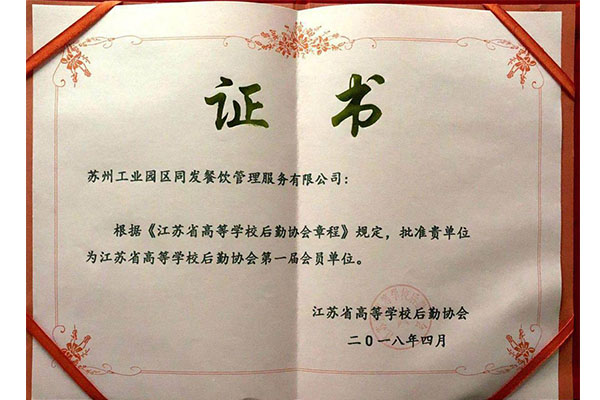 证书
苏州工业园区同发餐饮管理服务有限公司：
根据《江苏省高等学校后勤协会章程》规定，批准贵单位
为江苏省高等学校后勤协会第一届会员单位。
江苏省高等学校后勤协会
二〇一八年四月